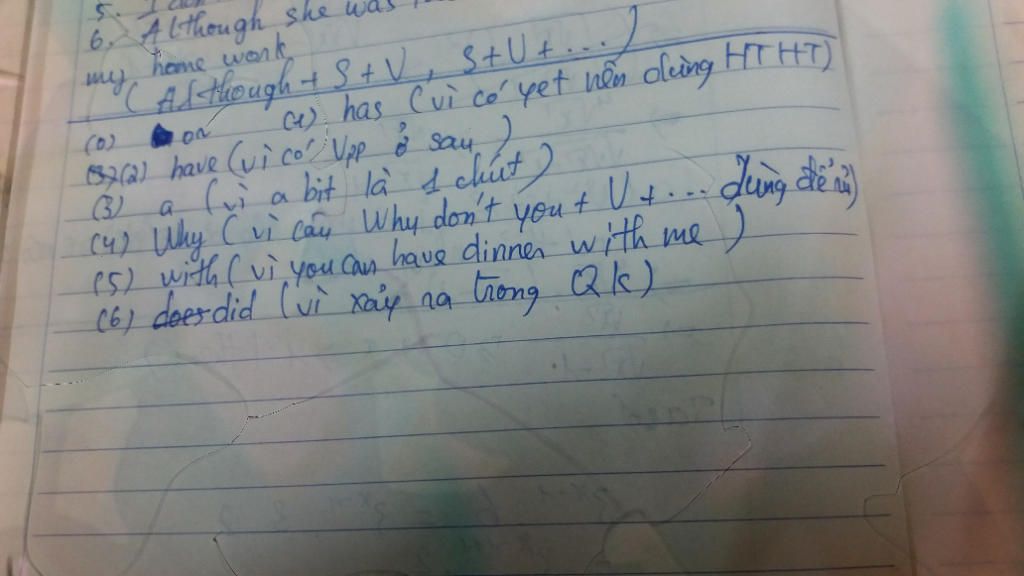 5. I
6. Although she was
my home work
(Although + S + V , S + V + ... )
(0) on (1) has (vì có yet nên dùng HTHT)
(2) have (vì có Vpp ở sau )
(3) a (vì a bit là 1 chút )
(4) Why ( vì câu Why don't you + V + ... dùng để rủ)
(5) with ( vì you can have dinner with me )
(6) did ( vì xảy ra trong QK)